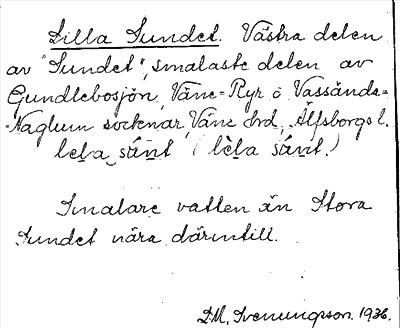 Lilla Sundet. Västra delen
av "Sundet", smalaste delen av
Gundlebosjön, Väne-Ryr o Vassända-
-Naglum socknar, Väne hrd, Älfsborgs l.
lɛla sánt (lèla sánt.)
Smalare vatten än Stora
Sundet nära därintill.
D.M. Svenungsson. 1936.